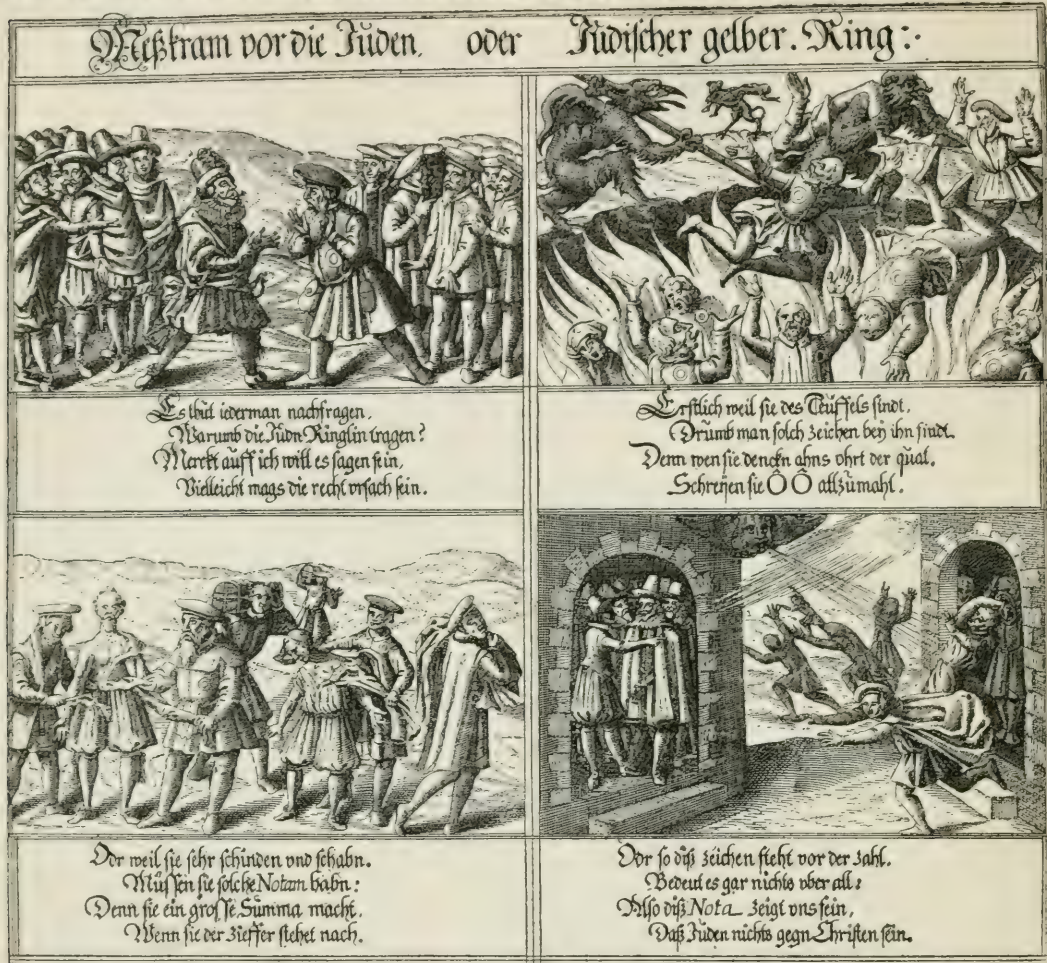 Meßkram vor die Jüden. oder Jüdischer gelber. Ring:.
Es thüt iederman nachfragen,
Warumb die Jüdn Ringlin tragen?
Merckt auff ich will es sagen fein,
Vielleicht mags die recht vrsach sein.
Erstlich weil sie des Teüffels sindt,
Drümb man solch zeichen beÿ ihn findt.
Denn wen sie denckn ahns ohrt der qual.
Schreÿen sie ÔÔ allzümahl.
Odr weil sie sehr schinden vnd schabn.
Müssen sie solche Notam habn:
Denn sie ein grosse Summa macht.
Wenn sie der zieffer stehet nach.
Odr so diß zeichen steht vor der zahl.
Bedeut es gar nichts vber all:
Also diß Nota zeigt vns fein,
Daß Jüden nichts gegn Christen sein.